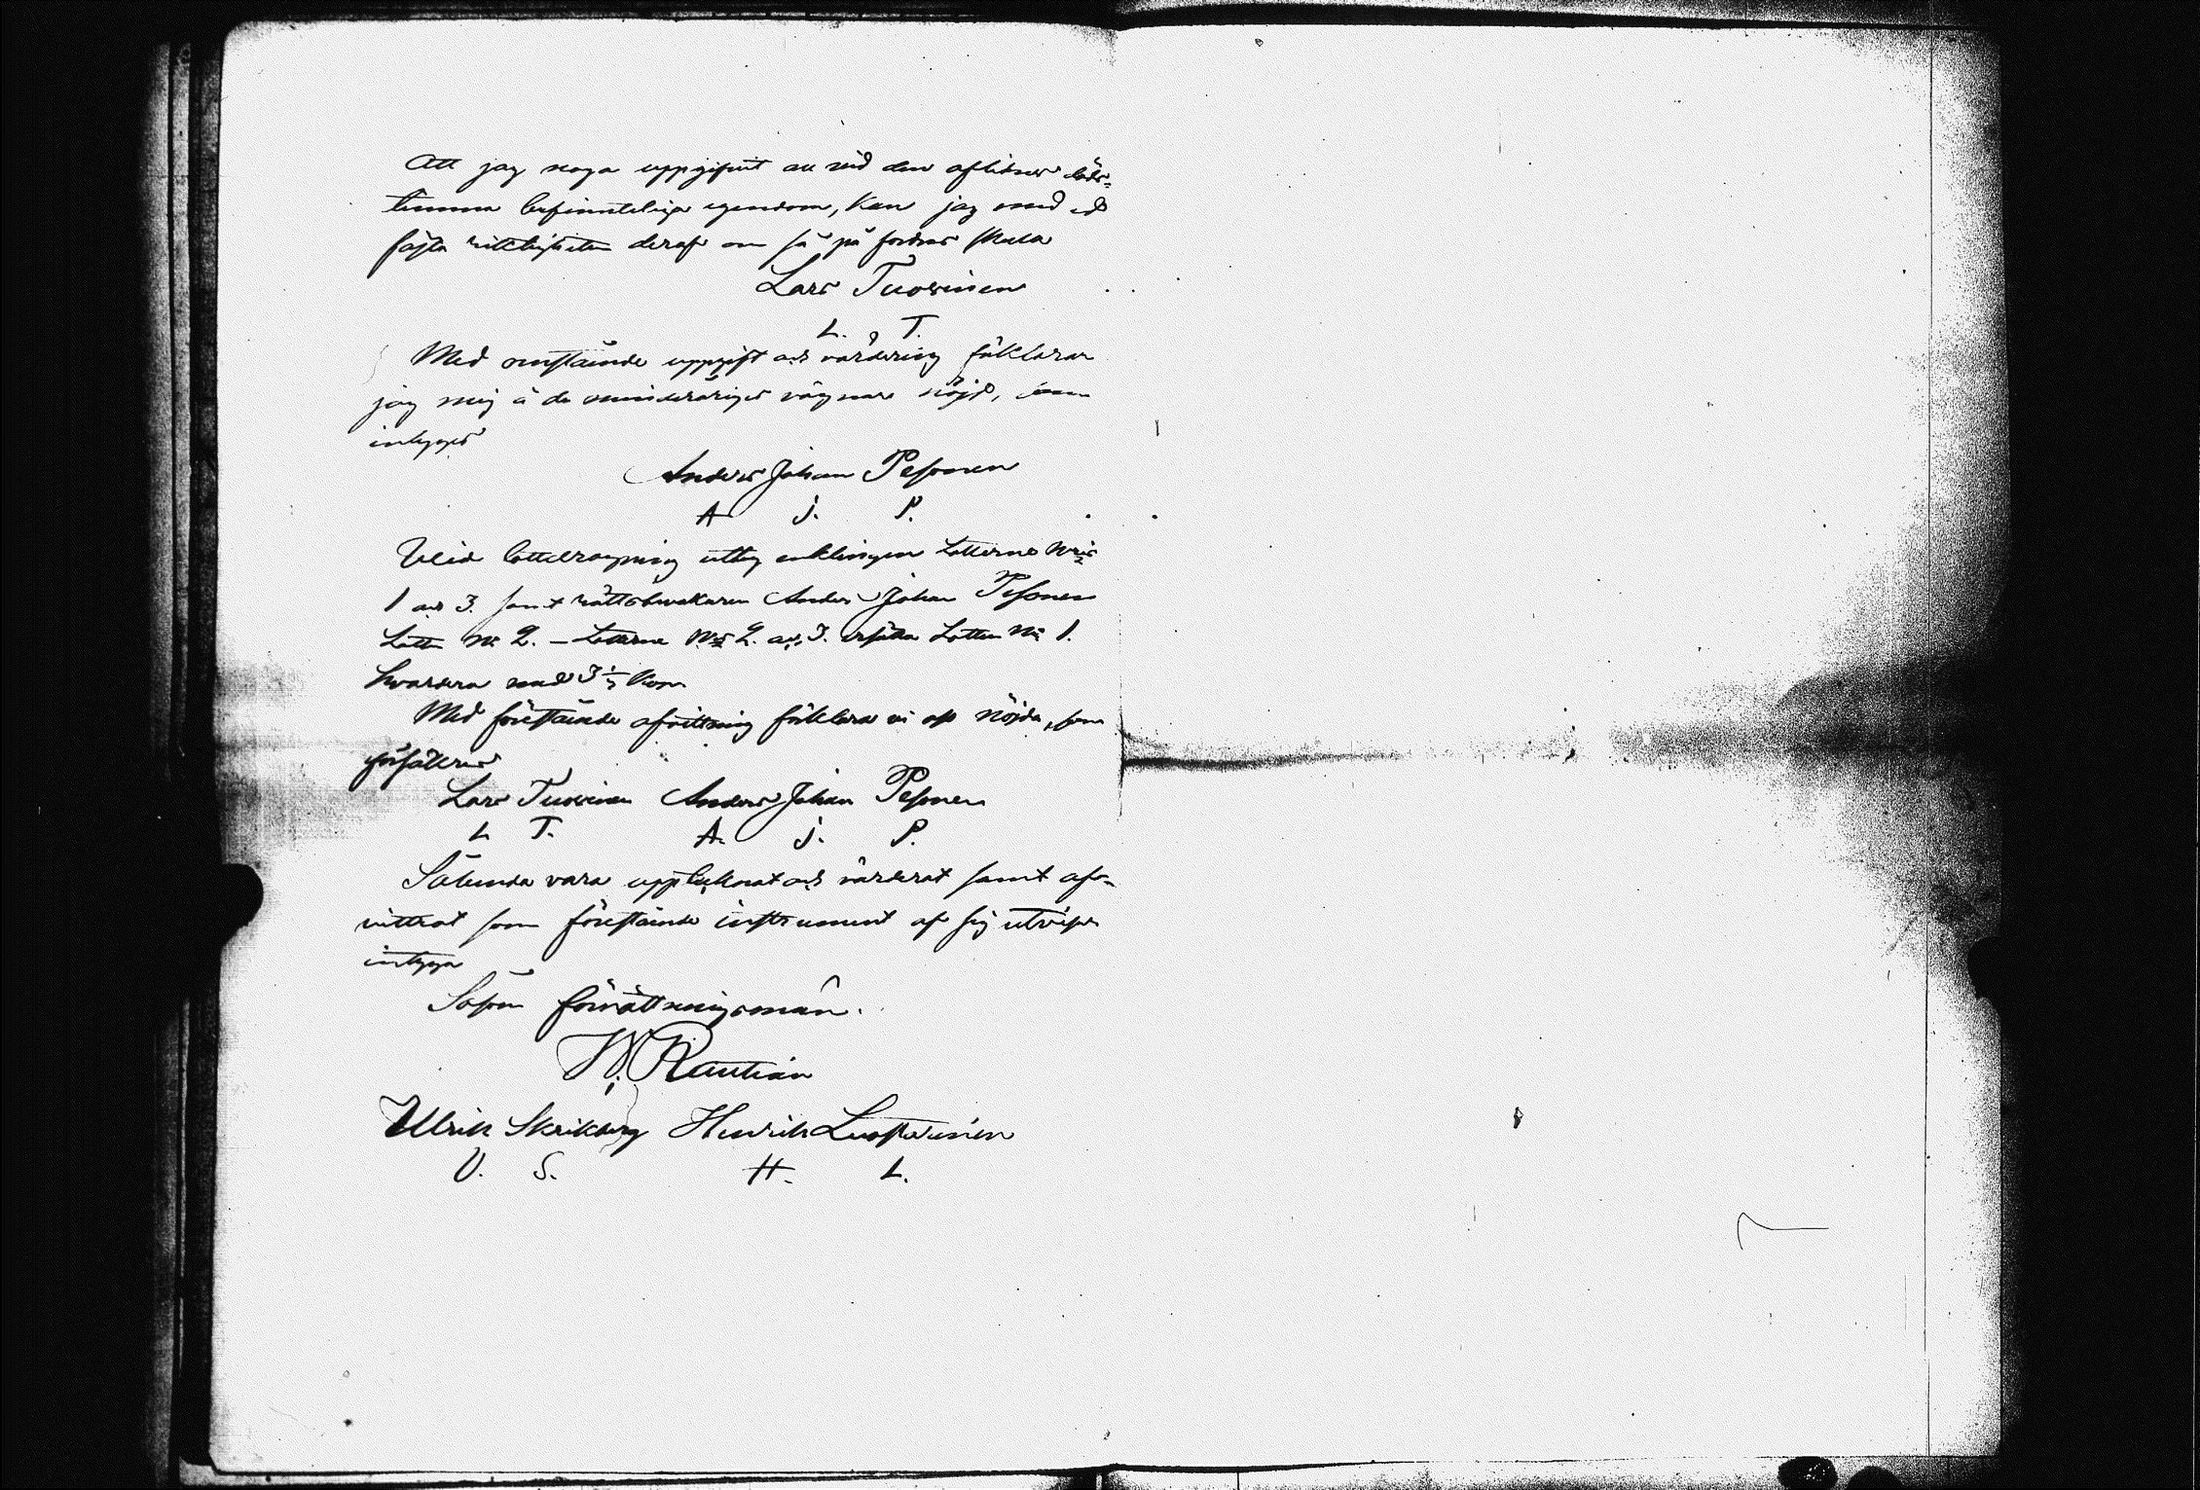 Att jag noga uppgifvit all vid den aflidnes döds-
timma befinnteliga egendom, kan jag med ed
fästa riktigheten deraf om så på fordras skulle
Lars Tuovinen
L. T.
Med omstående uppgift och värdering förklarar
jag mig å de omyndigas vägnar nöjd, som
intygas
Anders Johan Pesonen
A J. P.
Vid lottdragning uttog enklingen Lotterne Nris
1 och 3. samt rättsbevakaren Anders Johan Pesonen
Lotten No 2. — Lotterne Nris 2. och 3. ersätta Lotten No 1.
hvardera med 3 1/3 kop.
Med förestående afvittring förklara vi oss nöjda, som
försäkras
Lars Tuovinen Anders Johan Pesonen
L T. A. J. P.
Sålunda vara upptecknat och värderat samt af-
vittrat som förestående instrument af sig utvisar
intyga
Såsom förrättningsmän.
W. Rautian
Ulrik Skrikberg Henrik Luostarinen
U. S. H. L.